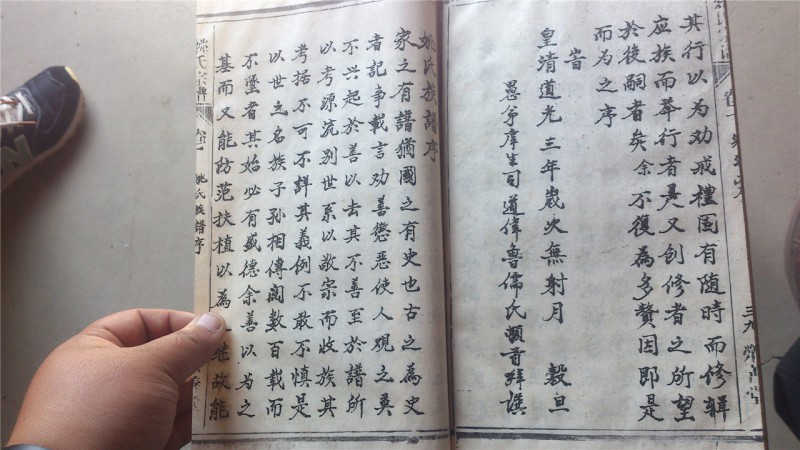 其行以为劝戒禮固有随時而修輯
应族而举行者是又刨修者之所望
於後嗣者矣余不復為多贅因即是
而为之序
旹
皇清道光三年歲次無射月 穀旦
愚弟庠生司道偉魯儒氏頓首拜譔
姚氏族譜序
家之有譜猶國之有史也古之為史
者記事載言劝善懲恶使人观之莫
不兴起於善以去其不善至於譜所
以考源流别世系以敦宗而收族其
考据不可不詳其義例不敢不慎是
以世之名族子孙相傳閲数百載而
不墜者其始必有盛德余善以為之
基而又能防范扶植以為継故能
姚氏宗譜
姚氏族譜序